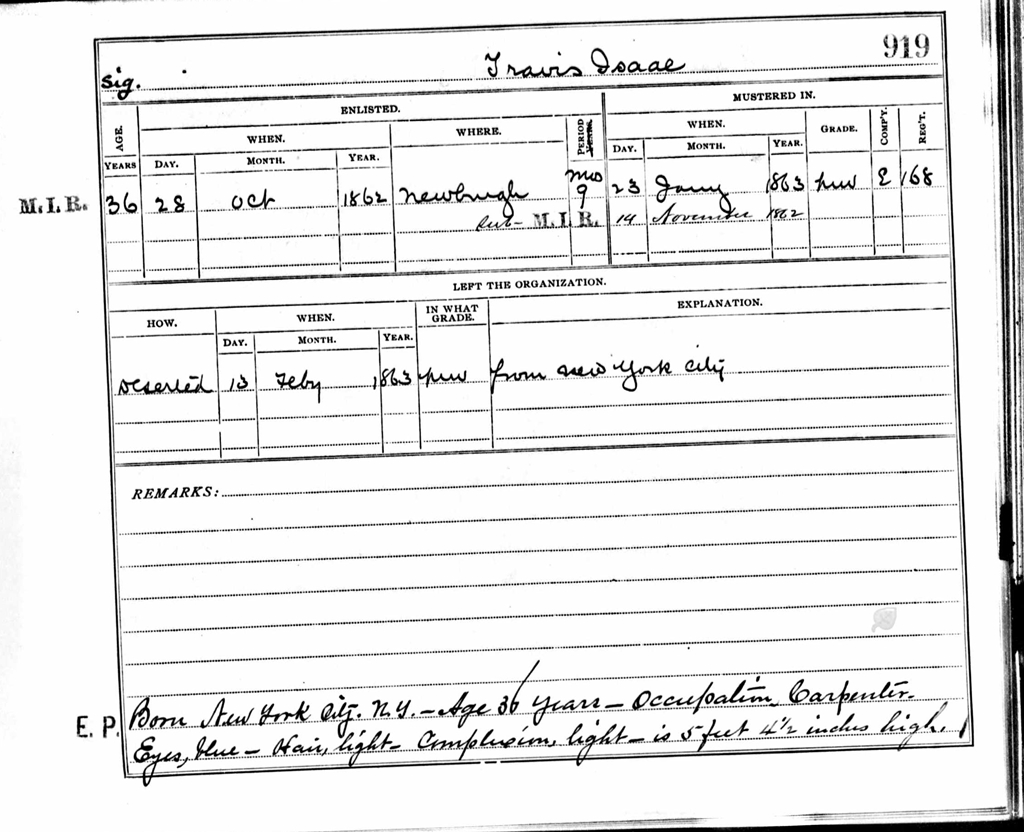 919
Sig. Travis Isaac
AGE. ENLISTED. MUSTERED IN.
WHEN. WHERE. PERIOD YEARS. WHEN. GRADE. COMP'Y. REG'T.
YEARS DAY. MONTH. YEAR. DAY. MONTH. YEAR.
M.I.R. 36 28 Oct 1862 Newburgh mos 9 23 Jany 1863 E 168
M.I.R. 14 November 1862
LEFT THE ORGANIZATION.
HOW. WHEN. IN WHAT GRADE. EXPLANATION.
DAY. MONTH. YEAR.
Deserted 13 Feby 1863 from New York City
REMARKS:
E.P. Born New York City. N.Y. – Age 36 years – Occupation, Carpenter.
Eyes, blue – Hair, light – Complexion, light – is 5 feet 4 1/2 inches high.